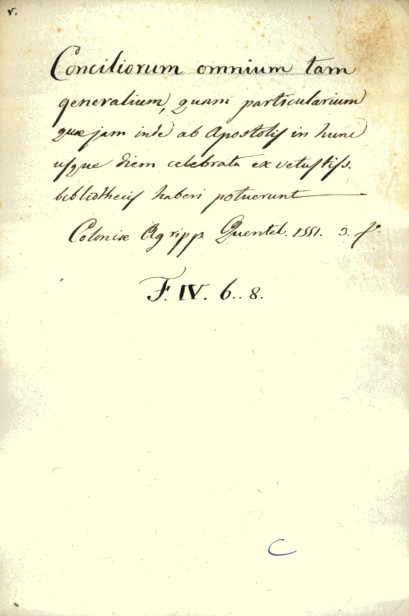 v.
Conciliorum omnium tam
generalium, quam particularium
quæ jam inde ab Apostolis in hunc
usque diem celebrata ex vetustiss.
bibliothecis haberi potuerunt —
Coloniæ Agripp. Quentel. 1551. 3. fº
F. IV. 6..8.
C